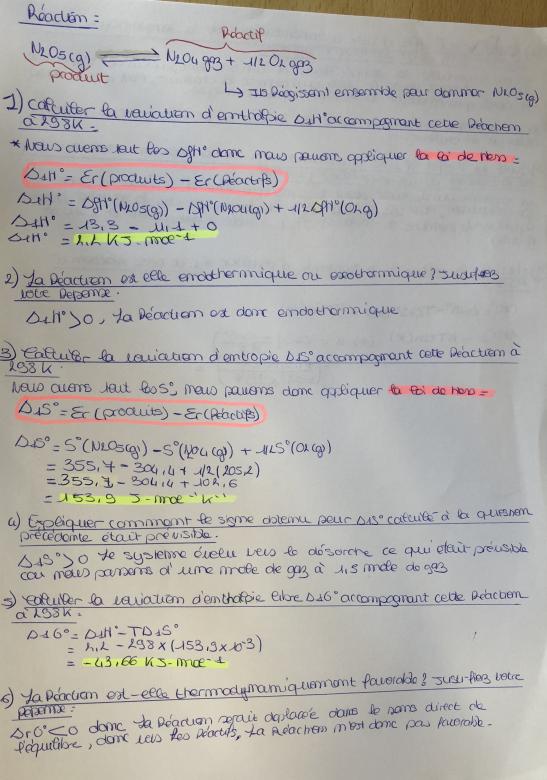 Réaction :
Réactif
N2O5(g) ⇌ N2O4 gaz + 1/2 O2 gaz
produit
↳ Ils Réagissent ensemble pour donner N2O5(g)
1) Calculer la variation d'enthalpie Δ1H° accompagnant cette Réaction
à 298K.
* Nous avons tout les ΔfH° donc nous pouvons appliquer la loi de Hess =
Δ1H° = Er(produits) - Er(Réactifs)
Δ1H° = ΔfH°(N2O5(g)) - ΔfH°(N2O4(g)) + 1/2 ΔfH°(O2(g)
Δ1H° = 13,3 - 11,1 + 0
Δ1H° = 2,2 KJ-moe-1
2) La Réaction est elle endothermique ou exothermique ? Justifiez
votre Réponse.
Δ1H° > 0, La Réaction est donc endothermique
3) Calculer la variation d'entropie Δ1S° accompagnant cette Réaction à
298 K.
Nous avons tout les S°, nous pouvons donc appliquer la loi de Hess =
Δ1S° = Er(produits) - Er(Réactifs)
Δ1S° = S°(N2O5(g)) - S°(NO4(g)) + 1/2 S°(O2(g)
= 355,7 - 304,4 + 1/2 (205,2)
= 355,7 - 304,4 + 102,6
= 153,9 J-moe-1 K-1
4) Expliquer comment le signe obtenu pour Δ1S° calculé à la question
précédente était prévisible.
Δ1S° > 0 le système évolu vers le désordre ce qui était prévisible
car nous passons d'une mole de gaz à 1,5 mole de gaz
5) Calculer la variation d'enthalpie libre Δ1G° accompagnant cette Réaction
à 298K.
Δ1G° = Δ1H° - TΔ1S°
= 2,2 - 298 x (153,9 x 10-3)
= -43,66 KJ-moe-1
6) La Réaction est-elle thermodynamiquement favorable ? Justifiez votre
Réponse :
ΔrG° < 0 donc la Réaction serait déplacée dans le sens direct de
l'équilibre, donc vers les Réactifs, La Réaction n'est donc pas favorable.